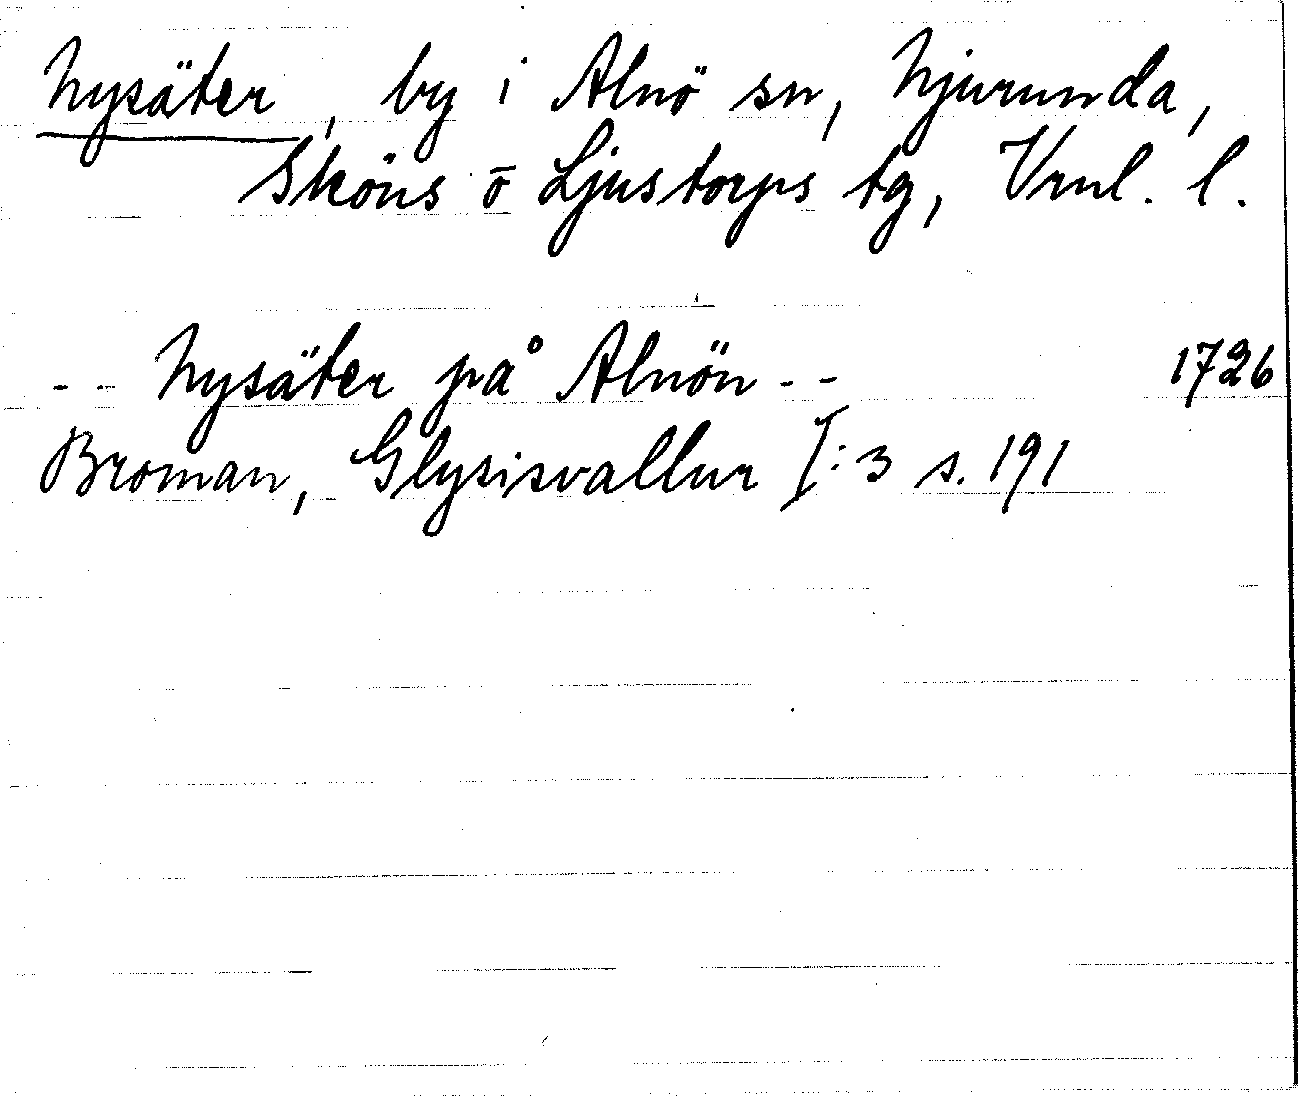 Nysäter, by i Alnö sn, Njurunda,
Sköns o Ljustorps tg, Vrnl. l.
-- Nysäter på Alnön -- 1726
Broman, Glysisvallur I:3 s. 191